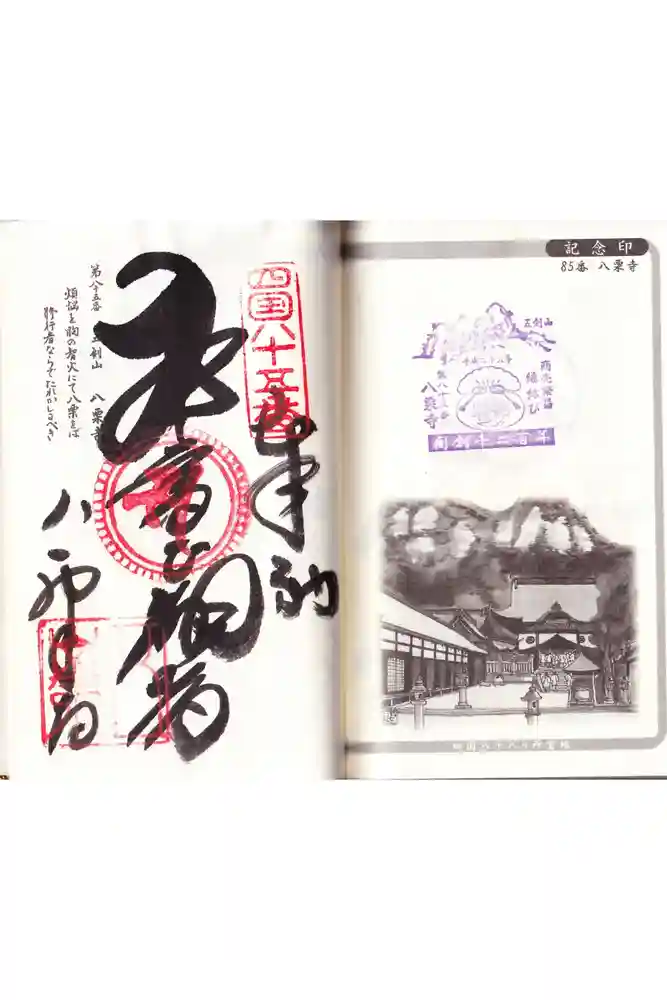 四国八十五番
奉納
第八十五番 五剣山 八栗寺
煩悩を胸の智火にて八栗をば
修行者ならでたれかしるべき
八栗寺
記念印
85番 八栗寺
五剣山
商売繁昌
縁結び
八栗寺
開創千二百年
四国八十八ヶ所霊場